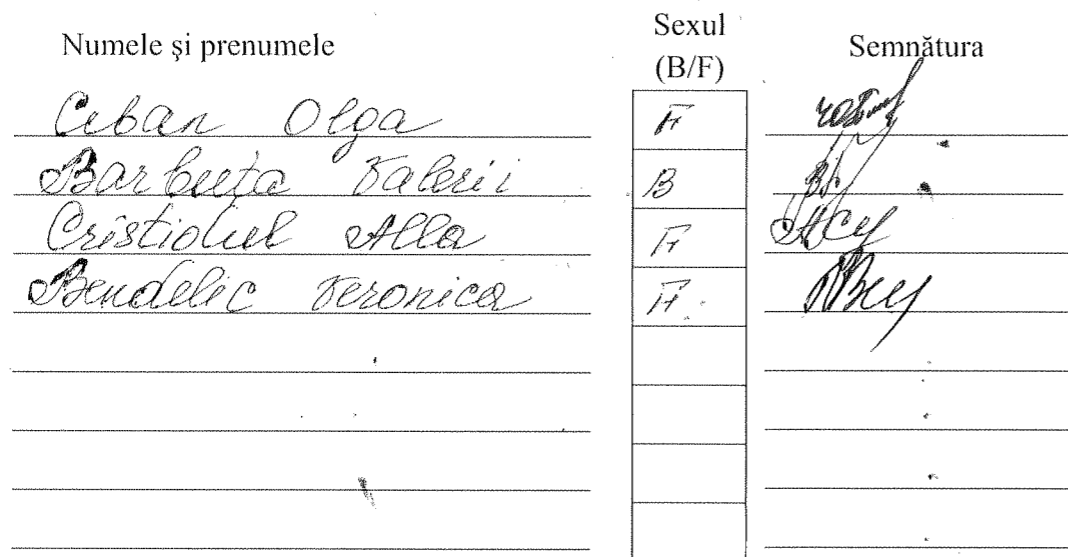 Numele și prenumele Sexul (B/F) Semnătura
Ciban Olga F
Barbuța Valerii B
Cristiolul Alla F
Bendelic Veronica F